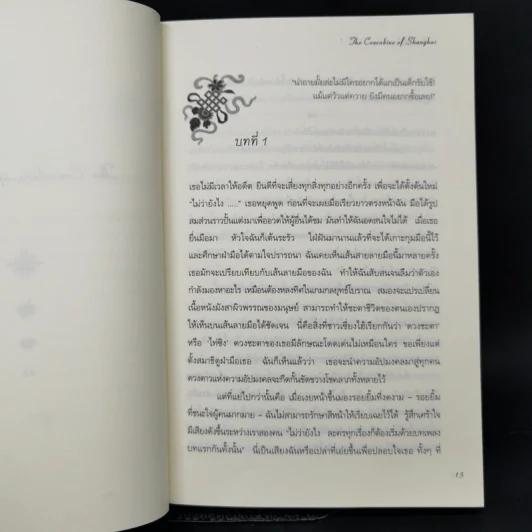 The Concubine of Shanghai
"น่าอายมั้ยล่ะไม่มีใครอยากได้แกเป็นเด็กรับใช้!
แม้แต่วัวแต่ควาย ยังมีคนอยากซื้อเลย!"
บทที่ 1
เธอไม่มีเวลาให้อดีต ยินดีที่จะเสี่ยงทุกสิ่งทุกอย่างอีกครั้ง เพื่อจะได้ตั้งต้นใหม่
"ไม่ว่ายังไง ....." เธอหยุดพูด ก่อนที่จะเผยมือเรียวยาวตรงหน้าฉัน มือได้รูป
สมส่วนราวปั้นแต่งมาเพื่ออวดให้ผู้อื่นได้ชม มันทำให้ฉันอดสนใจไม่ได้ เมื่อเธอ
ยื่นมือมา หัวใจฉันก็เต้นระรัว ใฝ่ฝันมานานแล้วที่จะได้เกาะกุมมือนี้ไว้
และศึกษาฝ่ามือได้ตามใจปรารถนา ฉันเคยเห็นเส้นลายมือนี้มาหลายครั้ง
เธอมักจะเปรียบเทียบกับเส้นลายมือของฉัน ทำให้ฉันสับสนจนลืมว่าตัวเอง
กำลังมองหาอะไร เหมือนต้องหลงทิศในเกมกลยุทธ์โบราณ สมองจะแปรเปลี่ยน
เนื้อหนังมังสาผิวพรรณของมนุษย์ สามารถทำให้ชะตาชีวิตของตนเองปรากฏ
ให้เห็นบนเส้นลายมือได้ชัดเจน นี่คือสิ่งที่ชาวเซี่ยงไฮ้เรียกกันว่า 'ดวงชะตา'
หรือ 'ไท่ซิง' ดวงชะตาของเธอมีลักษณะโดดเด่นไม่เหมือนใคร ขอเพียงแต่
ตั้งสมาธิดูฝ่ามือเธอ ฉันก็เห็นแล้วว่า เธอจะนำความอัปมงคลมาสู่ทุกคน
ดวงดาวแห่งความอัปมงคลจะกีดกั้นขัดขวางโชคลาภทั้งหลายไว้
แต่ที่แย่ไปกว่านั้นคือ เมื่อเงยหน้าขึ้นมองรอยยิ้มที่งดงาม – รอยยิ้ม
ที่ชนะใจผู้คนมากมาย – ฉันไม่สามารถรักษาสีหน้าให้เรียบเฉยไว้ได้ รู้สึกเศร้าใจ
มีเสียงดังขึ้นระหว่างเราสองคน "ไม่ว่ายังไง ละครทุกเรื่องก็ต้องเริ่มด้วยบทเพลง
บทแรกกันทั้งนั้น" นี่เป็นเสียงฉันหรือเปล่าที่เอ่ยขึ้นเพื่อปลอบใจเธอ ทั้งๆ ที่
13